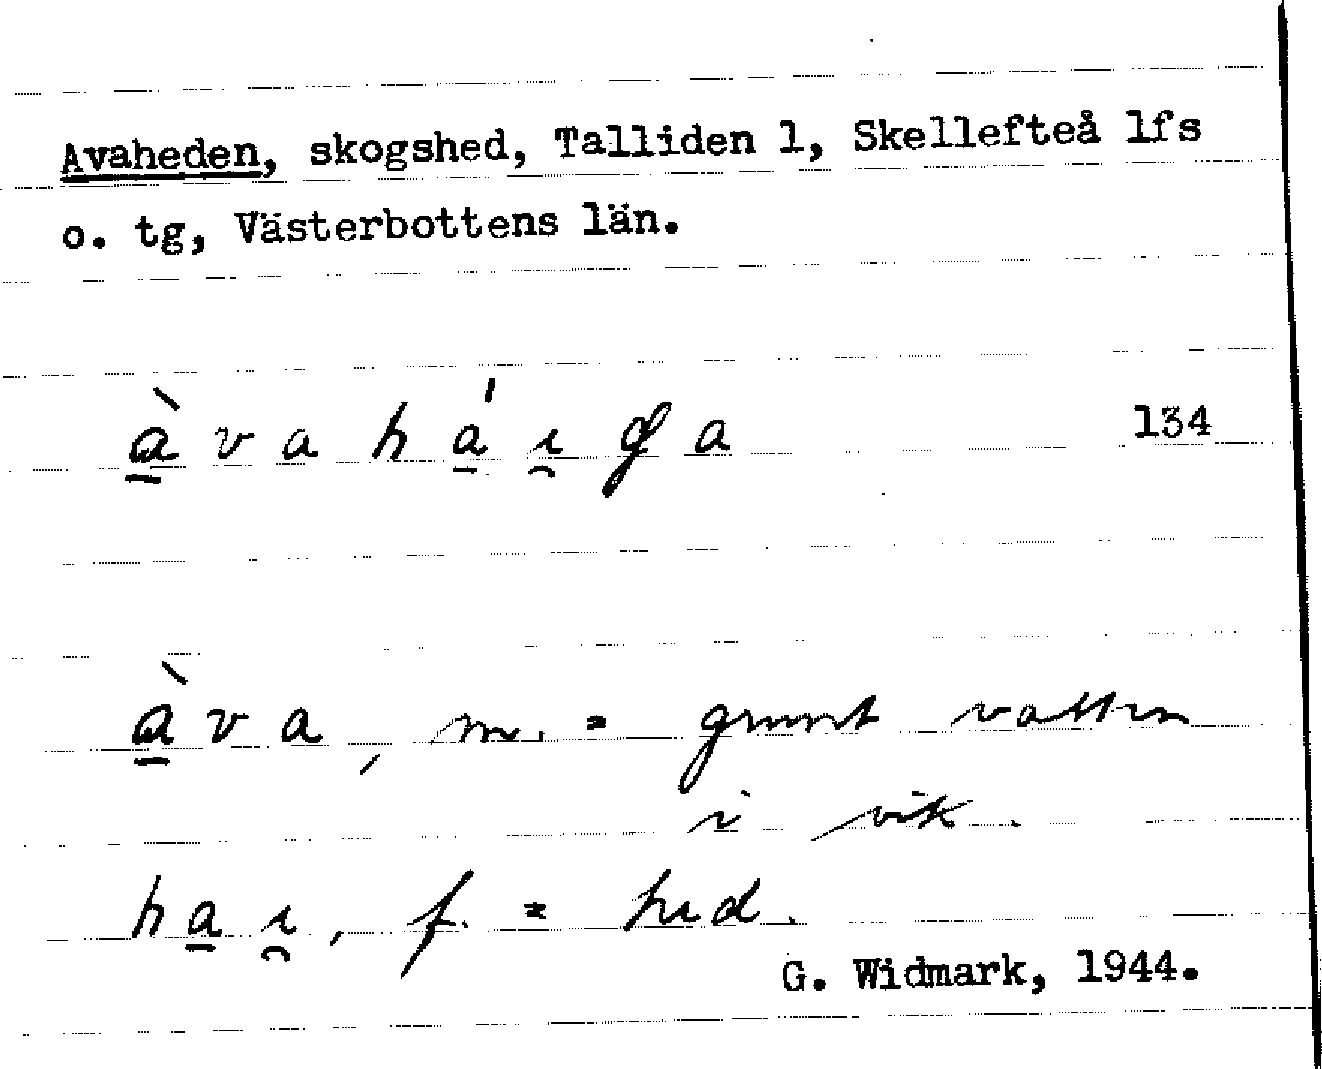 Avaheden, skogshed, Talliden 1, Skellefteå lfs
o. tg, Västerbottens län.
à̱vahá̱ı̯ɠa 134
à̱va, m. = grunt vatten
i vik.
ha̱ı̯, f. = hed.
G. Widmark, 1944.